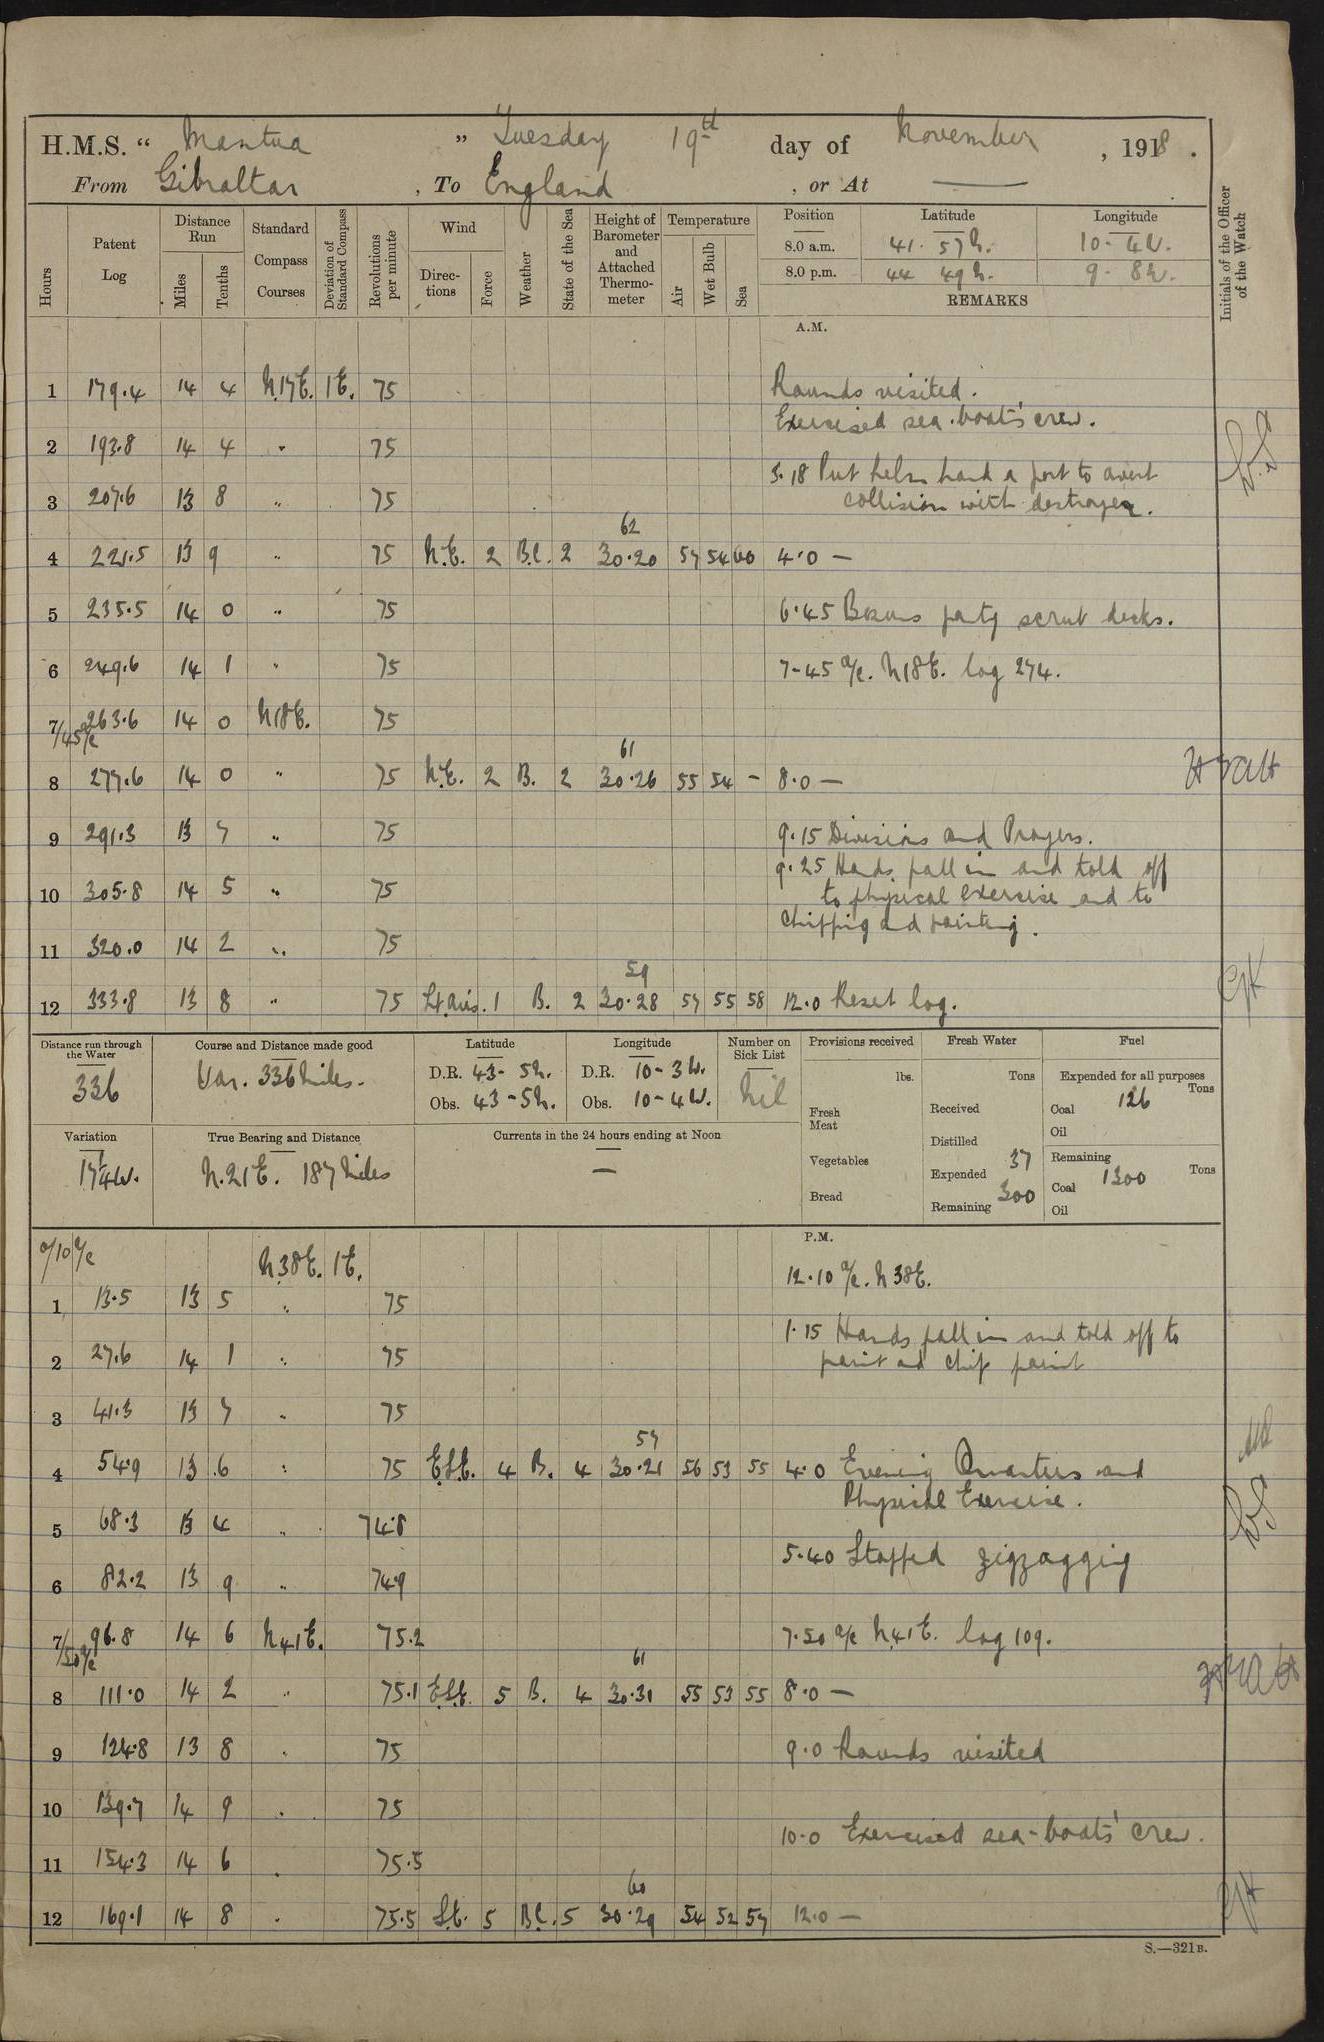 H.M.S. " Mantua " Tuesday 19th day of November, 1918.
From Gibraltar, To England, or At —
Hours
Patent Log
Distance Run
Miles
Tenths
Standard Compass Courses
Deviation of Standard Compass
Revolutions per minute
Wind
Directions
Force
Weather
State of the Sea
Height of Barometer and Attached Thermometer
Temperature
Air
Wet Bulb
Sea
Position Latitude Longitude
8.0 a.m. 41. 57 N. 10-4 W.
8.0 p.m. 44 49 N. 9. 8 W.
REMARKS
Initials of the Officer of the Watch
A.M.
1 179.4 14 4 N.17E. 1E. 75 Rounds visited.
Exercised sea-boat's crew.
2 193.8 14 4 " 75
3.18 Put helm hard a port to avert
3 207.6 13 8 " 75 collision with destroyer.
62
4 221.5 13 9 " 75 N.E. 2 B.C. 2 30.20 57 54 60 4.0 —
5 235.5 14 0 " 75 6.45 Bosuns party scrub decks.
6 249.6 14 1 " 75 7-45 a/c. N18E. log 274.
7 263.6 14 0 N18E. 75
7/45 a/c
61
8 277.6 14 0 " 75 N.E. 2 B. 2 30.26 55 54 - 8.0 —
9 291.3 13 7 " 75 9.15 Divisions and Prayers.
9.25 Hands fall in and told off
10 305.8 14 5 " 75 to physical exercise and to
chipping and painting.
11 320.0 14 2 " 75
59
12 333.8 13 8 " 75 Lt. airs. 1 B. 2 30.28 57 55 58 12.0 Reset log.
Distance run through the Water
336
Course and Distance made good
Var. 336 miles.
Latitude
D.R. 43- 5 N.
Obs. 43-5 N.
Longitude
D.R. 10-3 W.
Obs. 10-4 W.
Number on Sick List
Nil
Provisions received
lbs.
Fresh Meat
Vegetables
Bread
Fresh Water
Tons
Received
Distilled
Expended 37
Remaining 300
Fuel
Expended for all purposes
Tons
Coal 126
Oil
Remaining
Tons
Coal 1300
Oil
Variation
17¼W.
True Bearing and Distance
N.21E. 187 Miles
Currents in the 24 hours ending at Noon
—
P.M.
0/10 a/c N38E. 1E. 12.10 a/c. N38E.
1 13.5 13 5 " 75
1.15 Hands fall in and told off to
2 27.6 14 1 " 75 paint and chip paint
3 41.3 13 7 " 75
57
4 54.9 13 6 " 75 E.S.E. 4 B. 4 30.21 56 53 55 4.0 Evening Quarters and
Physical Exercise.
5 68.3 13 4 " 74.8
5.40 Stopped zigzagging
6 82.2 13 9 " 74.9
7 96.8 14 6 N41E. 75.2 7.50 a/c N41E. log 109.
7/50 a/c
61
8 111.0 14 2 " 75.1 E.S.E. 5 B. 4 30.31 55 53 55 8.0 —
9 124.8 13 8 " 75 9.0 Rounds visited
10 139.7 14 9 " 75
10.0 Exercised sea-boats' crew.
11 154.3 14 6 " 75.5
60
12 169.1 14 8 " 75.5 S.E. 5 B.C. 5 30.29 54 52 57 12.0 —
S.—321B.